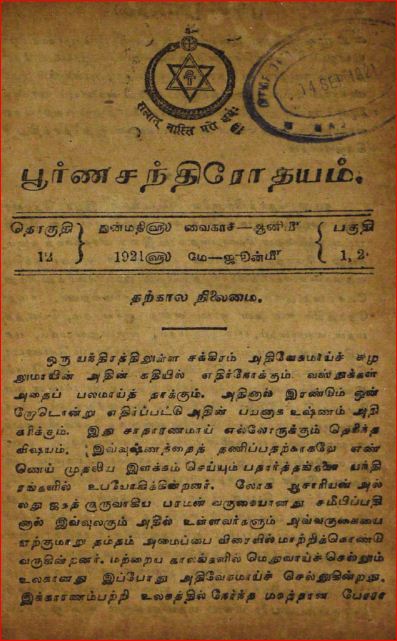 सत्यात् नास्ति परो धर्मः
14 SEP 1921
பூர்ணசந்திரோதயம்.
தொகுதி
12
துன்மதி௵ வைகாசி—ஆனி௴
1921௵ மே—ஜூன்௴
பகுதி
1, 2
தற்கால நிலைமை.
ஒரு யந்திரத்திலுள்ள சக்கிரம் அதிவேகமாய்ச் சுழ
லுமாயின் அதின் கதியில் எதிர்நோக்கும் வஸ்துக்கள்
அதைப் பலமாய்த் தாக்கும். அதினால் இரண்டும் ஒன்
றோடொன்று எதிர்ப்பட்டு அதின் பயனாக உஷ்ணம் அதி
கரிக்கும். இது சாதாரணமாய் எல்லோருக்கும் தெரிந்த
விஷயம். இவ்வுஷ்ணத்தைத் தணிப்பதற்காகவே எண்
ணெய் முதலிய இளக்கம் செய்யும் பதார்த்தங்களை யந்தி
ரங்களில் உபயோகிக்கின்றனர். லோக ஆசாரியன் அல்
லது ஜகத் குருவாகிய பரமன் வருகையானது சமீபிப்பதி
னால் இவ்வுலகும் அதில் உள்ளவர்களும் அவ்வருகையை
ஏற்குமாறு தம்தம் அமைப்பை விரைவில் மாற்றிக்கொண்டு
வருகின்றனர். மற்றைய காலங்களில் மெதுவாய்ச் செல்லும்
உலகானது இப்போது அதிவேகமாய்ச் செல்லுகின்றது.
இக்காரணம்பற்றி உலகத்தில் நேர்ந்த மகத்தான பேரா